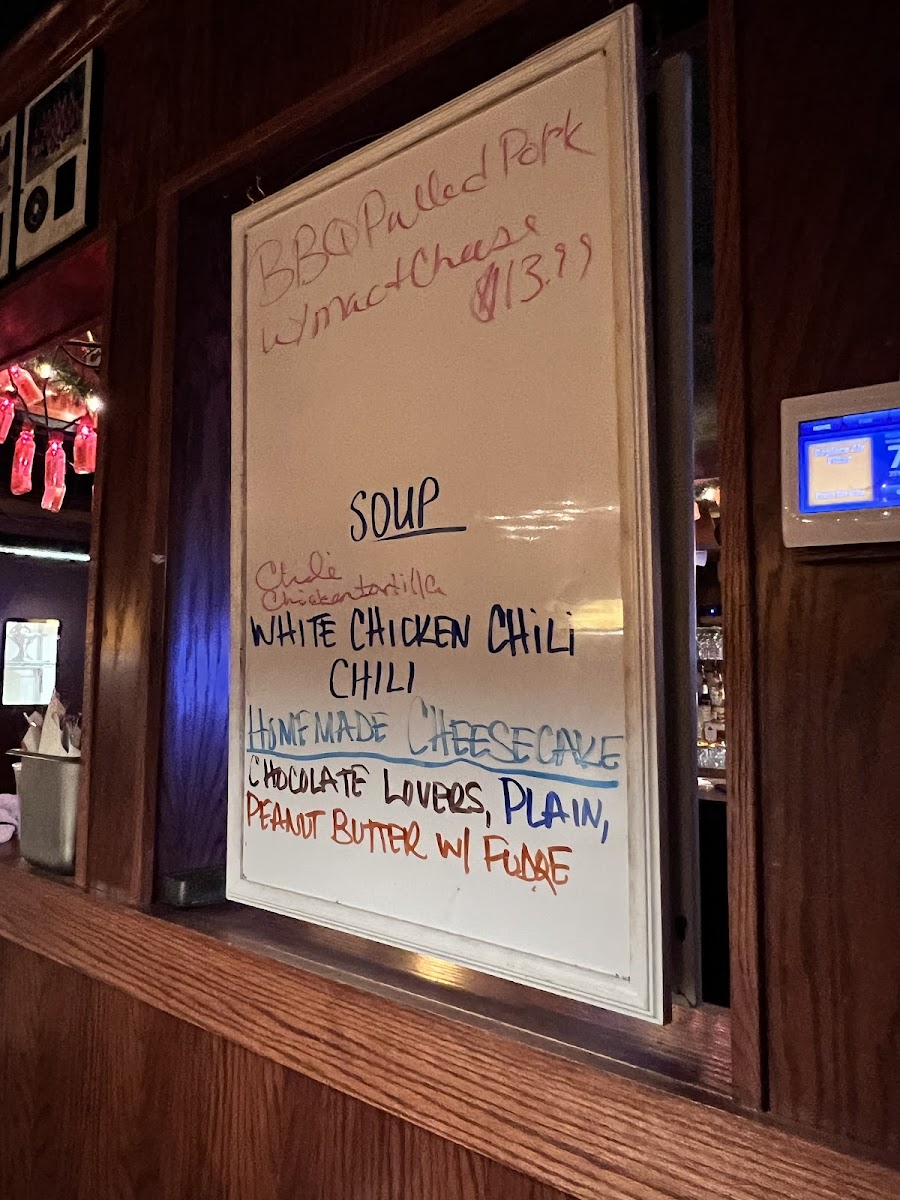 BBQ Pulled Pork
w/ mac + Cheese
$13.99
SOUP
Chicken tortilla
WHITE CHICKEN CHiLi
CHILI
HOMEMADE CHEESECAKE
CHOCOLATE LOVERS, PLAIN,
PEANUT BUTTER W/ FUDGE